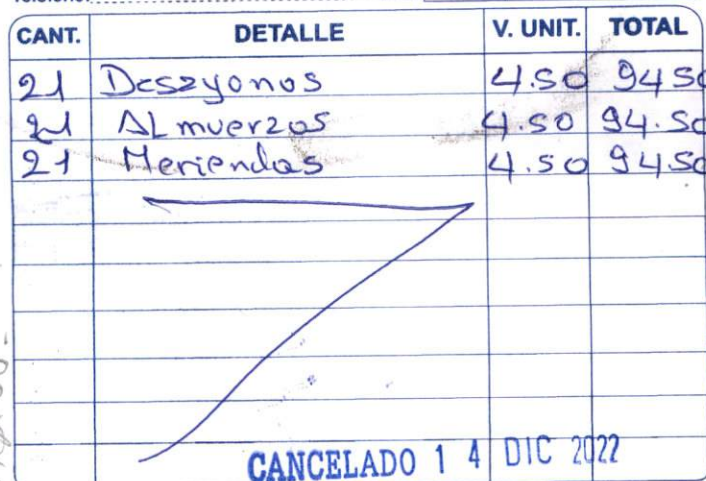 CANT. DETALLE V. UNIT. TOTAL
21 Desayonos 4.50 94.50
21 ALmuerzos 4.50 94.50
21 Meriendas 4.50 94.50
CANCELADO 14 DIC 2022